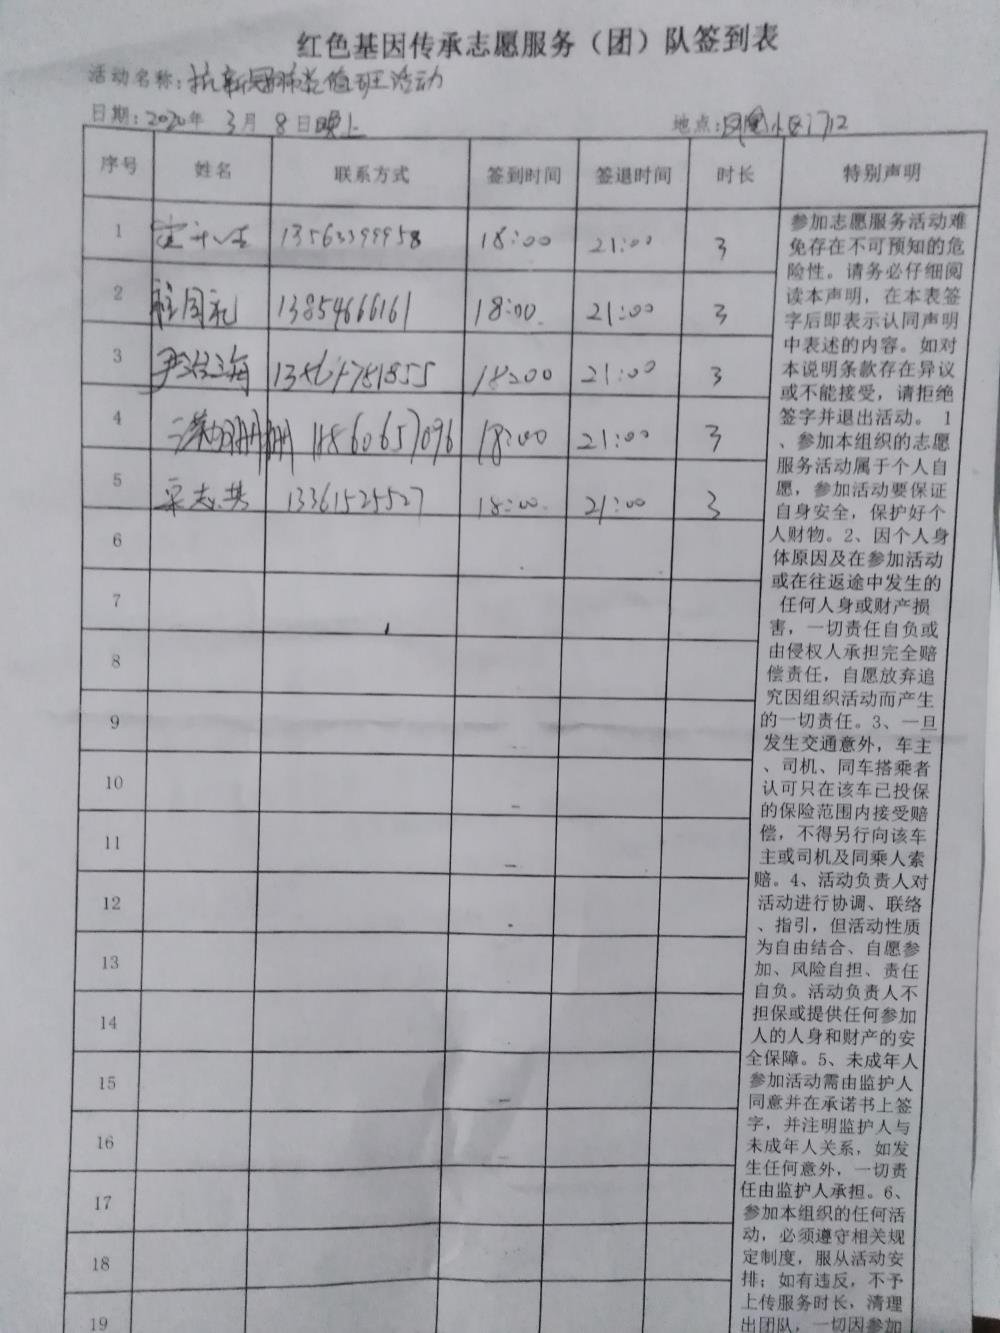 红色基因传承志愿服务（团）队签到表
活动名称：抗新冠肺炎值班活动
日期：2020年 3月 8日晚上 地点：凤凰小区
序号 姓名 联系方式 签到时间 签退时间 时长 特别声明
1 13563399958 18:00 21:00 3
2 13854666161 18:00 21:00 3
3 尹 海 18:00 21:00 3
4 18:00 21:00 3
5 志 13361525527 18:00 21:00 3
6
7
8
9
10
11
12
13
14
15
16
17
18
19
参加志愿服务活动难
免存在不可预知的危
险性。请务必仔细阅
读本声明，在本表签
字后即表示认同声明
中表述的内容。如对
本说明条款存在异议
或不能接受，请拒绝
签字并退出活动。 1
、参加本组织的志愿
服务活动属于个人自
愿，参加活动要保证
自身安全，保护好个
人财物。2、因个人身
体原因及在参加活动
或在往返途中发生的
任何人身或财产损
害，一切责任自负或
由侵权人承担完全赔
偿责任，自愿放弃追
究因组织活动而产生
的一切责任。3、一旦
发生交通意外，车主
、司机、同车搭乘者
认可只在该车已投保
的保险范围内接受赔
偿，不得另行向该车
主或司机及同乘人索
赔。4、活动负责人对
活动进行协调、联络
、指引，但活动性质
为自由结合、自愿参
加、风险自担、责任
自负。活动负责人不
担保或提供任何参加
人的人身和财产的安
全保障。5、未成年人
参加活动需由监护人
同意并在承诺书上签
字，并注明监护人与
未成年人关系，如发
生任何意外，一切责
任由监护人承担。6、
参加本组织的任何活
动，必须遵守相关规
定制度，服从活动安
排；如有违反，不予
上传服务时长，清理
出团队，一切因参加